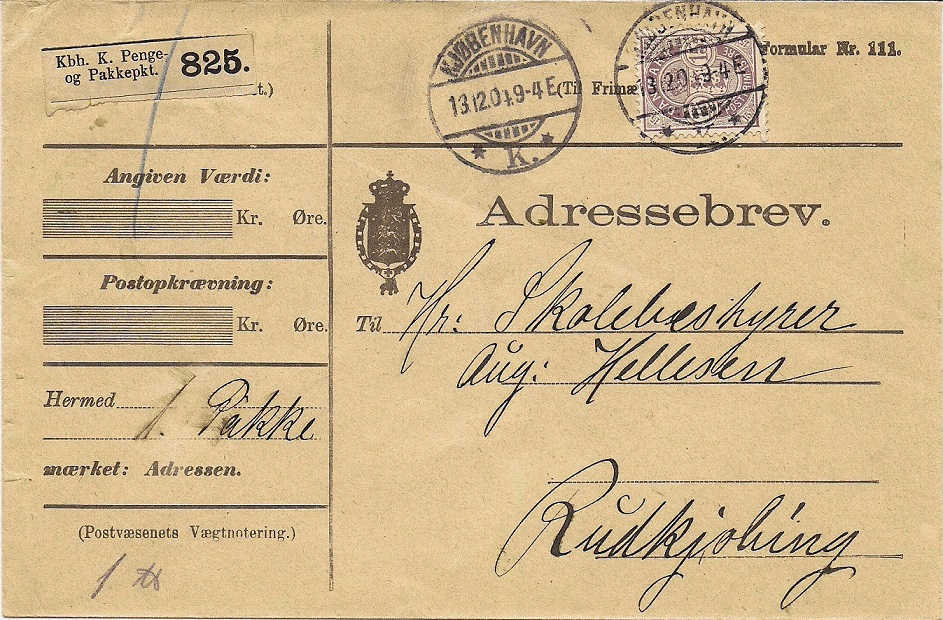 Kbh. K. Penge-
og Pakkepkt. 825.
t.)
KJØBENHAVN
13.12.04.9-4E
K.
(Til Frimæ
KJØBENHAVN
Formular Nr. 111.
Angiven Værdi:
Kr. Øre.
Postopkrævning:
Kr. Øre.
Hermed 1. Pakke
mærket: Adressen.
(Postvæsenets Vægtnotering.)
Adressebrev.
Til Hr: Skolebestyrer
Aug: Hellesen
Rudkjøbing